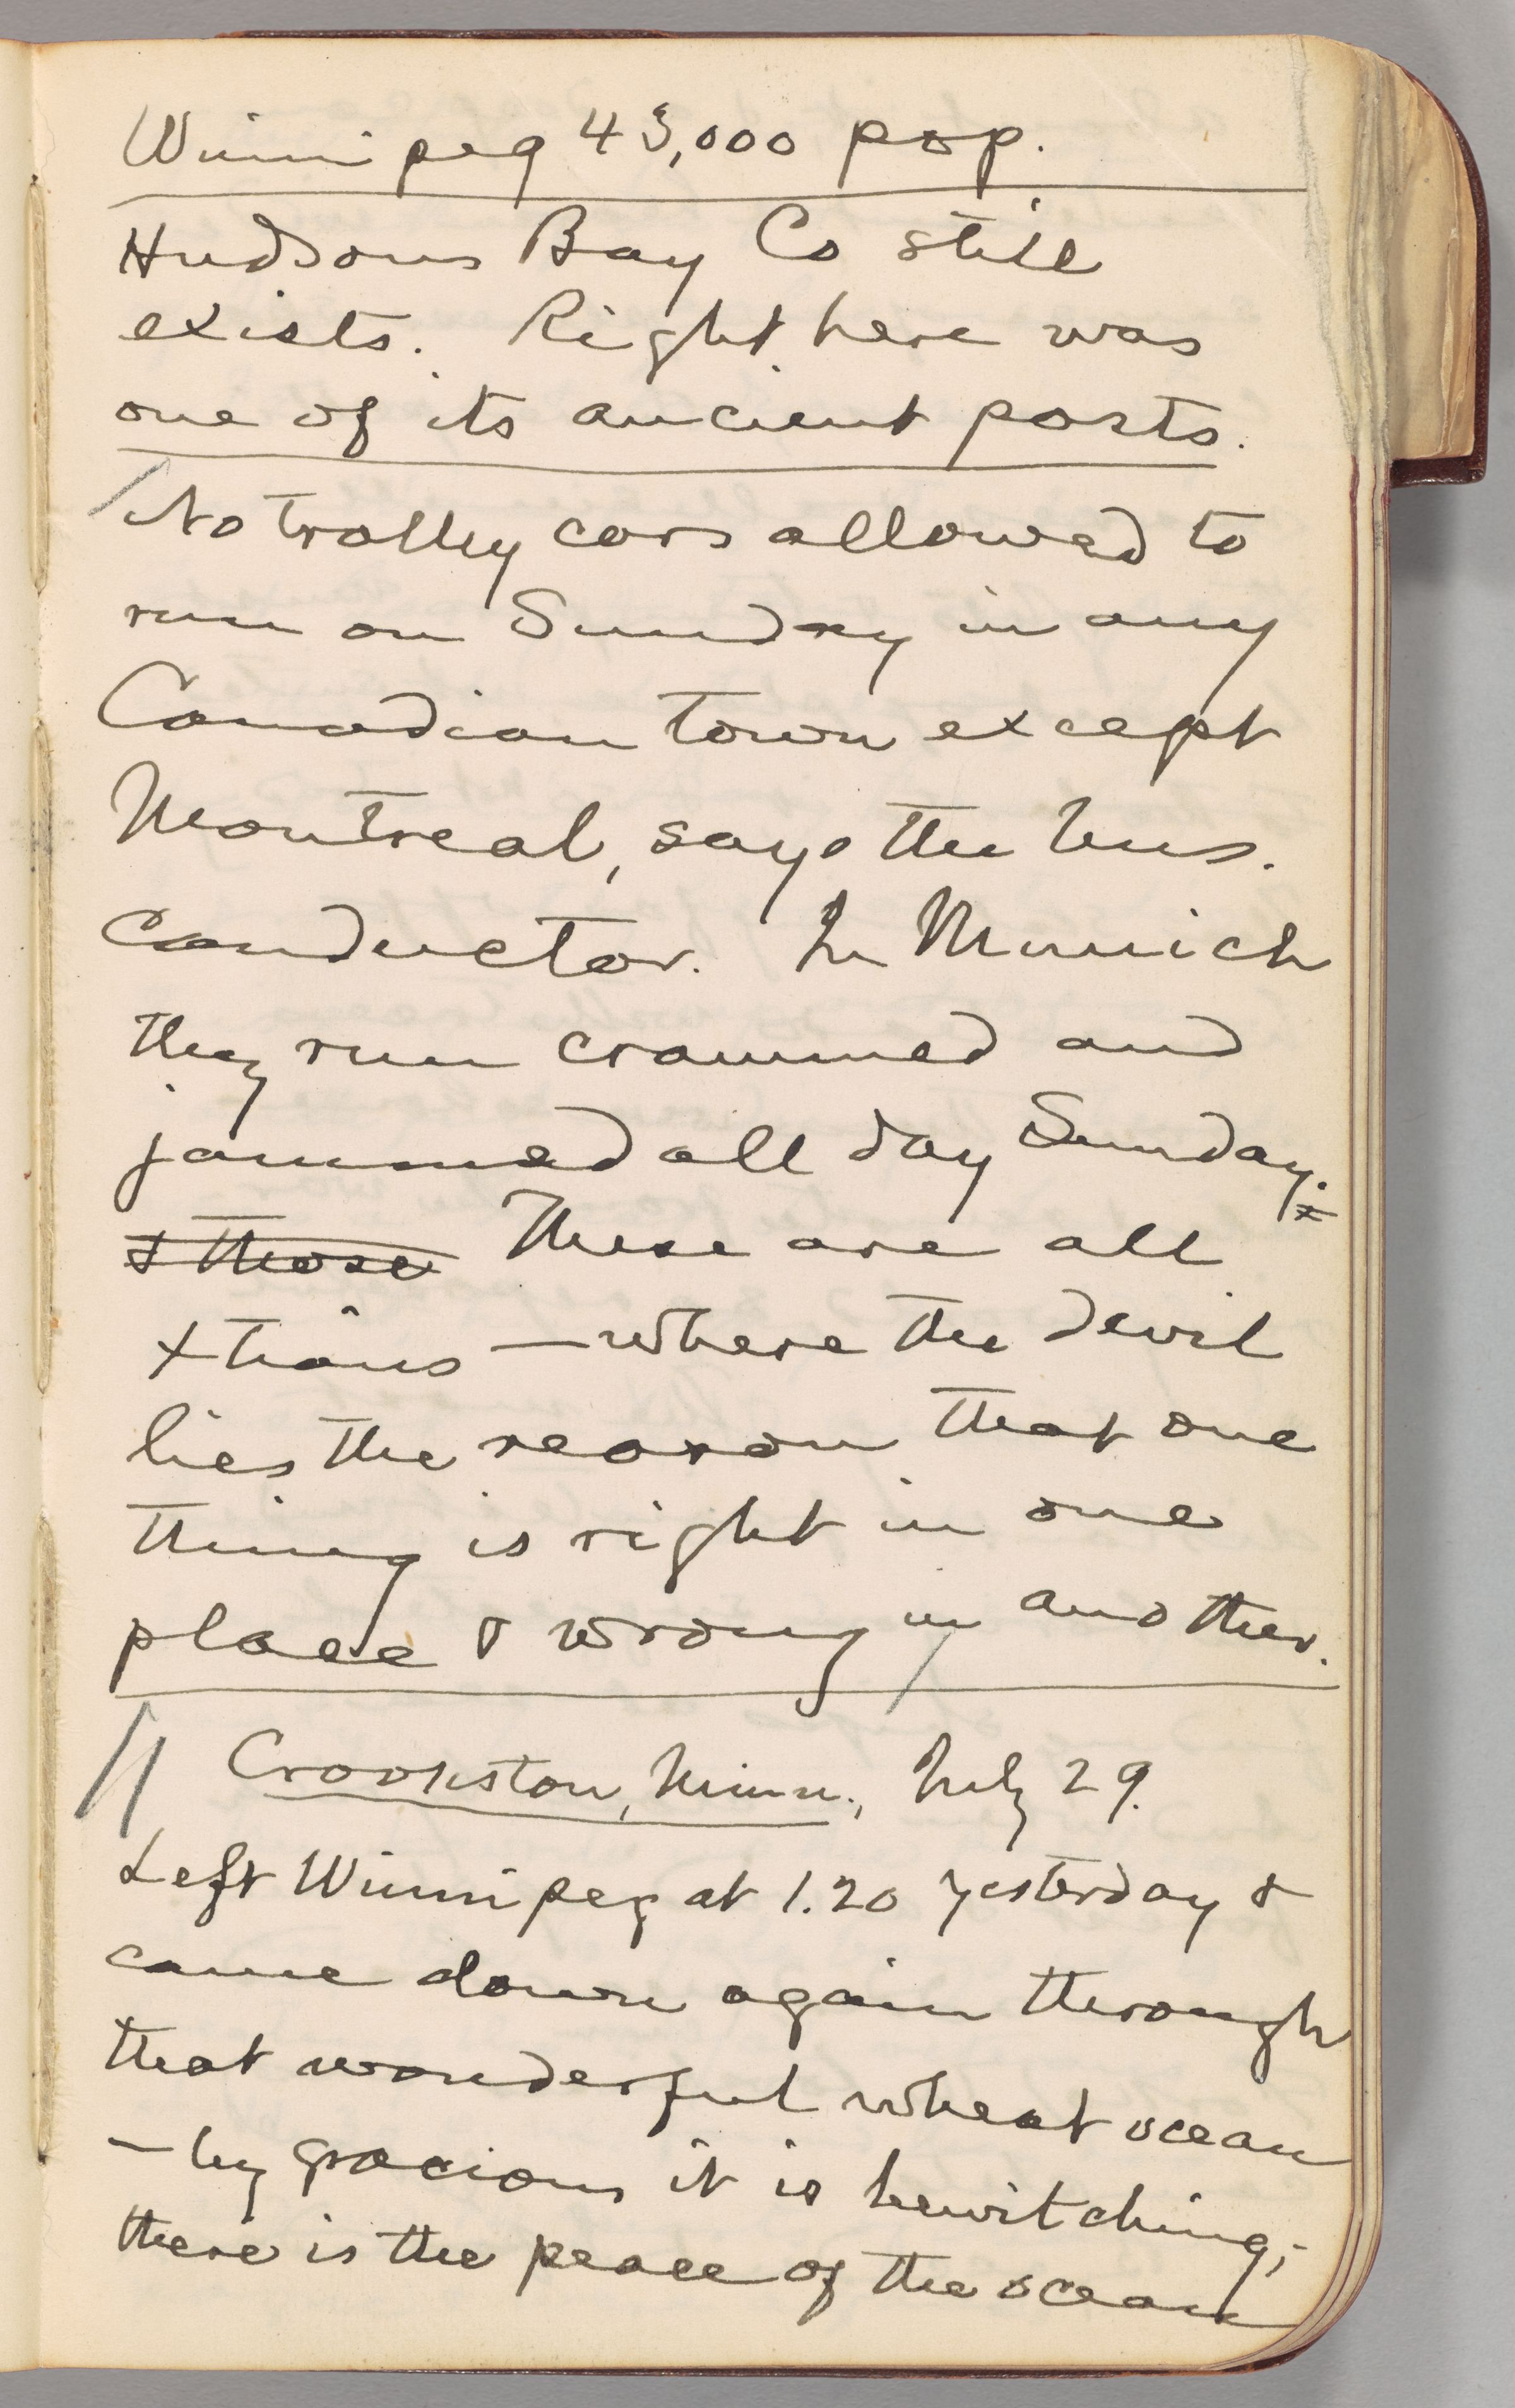 Winnipeg 43,000 pop.
Hudsons Bay Co still
exists. Right here was
one of its ancient posts.
No trolley cars allowed to
run on Sunday in any
Canadian town except
Montreal, says the bus.
conductor. In Munich
they run crammed and
jammed all day Sunday.
& those These are all
Xtians — where the devil
lies the reason that one
thing is right in one
place & wrong in another.
Crookston, Minn., July 29.
Left Winnipeg at 1.20 yesterday &
came down again through
that wonderful wheat ocean
— by gracious it is bewitching;
there is the peace of the ocean